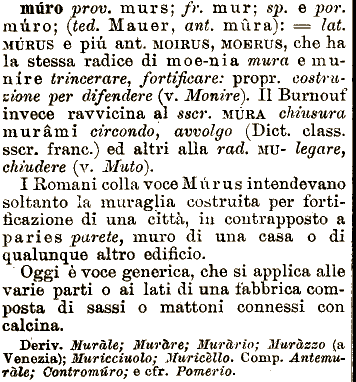 múro prov. murs; fr. mur; sp. e por.
múro; (ted. Mauer, ant. mûra): = lat.
MÚRUS e più ant. MOIRUS, MOERUS, che ha
la stessa radice di moe-nia mura e mu-
níre trincerare, fortificare: propr. costru-
zione per difendere (v. Monire). Il Burnouf
invece ravvicina al sscr. MÚRA chiusura
murâmi circondo, avvolgo (Dict. class.
sscr. franc.) ed altri alla rad. MU- legare,
chiudere (v. Muto).
I Romani colla voce Múrus intendevano
soltanto la muraglia costruita per forti-
ficazione di una città, in contrapposto a
paries parete, muro di una casa o di
qualunque altro edificio.
Oggi è voce generica, che si applica alle
varie parti o ai lati di una fabbrica com-
posta di sassi o mattoni connessi con
calcina.
Deriv. Muràle; Muràre; Muràrio; Muràzzo (a
Venezia); Muricciuolo; Muricèllo. Comp. Antemu-
ràle; Contromúro; e cfr. Pomerio.